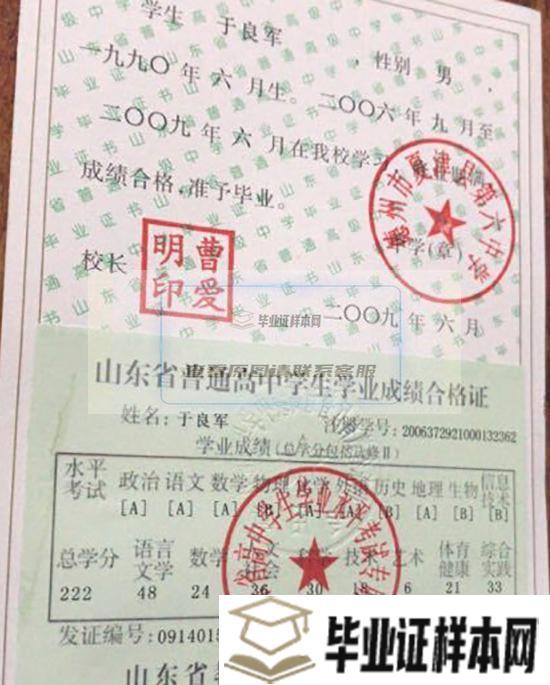 学生 于良军 ，性别 男 ，
一九九〇 年 六 月生。二〇〇六 年 九 月至
二〇〇九 年 六 月在我校学习
成绩合格，准予毕业。
德州市夏津县第六中学
中学(章)
校长
曹爱明印
二〇〇九 年 六 月
毕业证样本网
查看原图请联系客服
山东省普通高中学生学业成绩合格证
姓名: 于良军 注册学号: 2006372921000132362
学业成绩 (总学分包括选修Ⅱ)
水平考试 政治 语文 数学 物理 化学 外语 历史 地理 生物 信息技术
[A] [A] [A] [B] [A] [B] [A] [B] [B]
总学分 语言文学 数学 技术 艺术 体育健康 综合实践
222 48 24 36 30 18 6 21 33
发证编号: 0914015
山东省
毕业证样本网